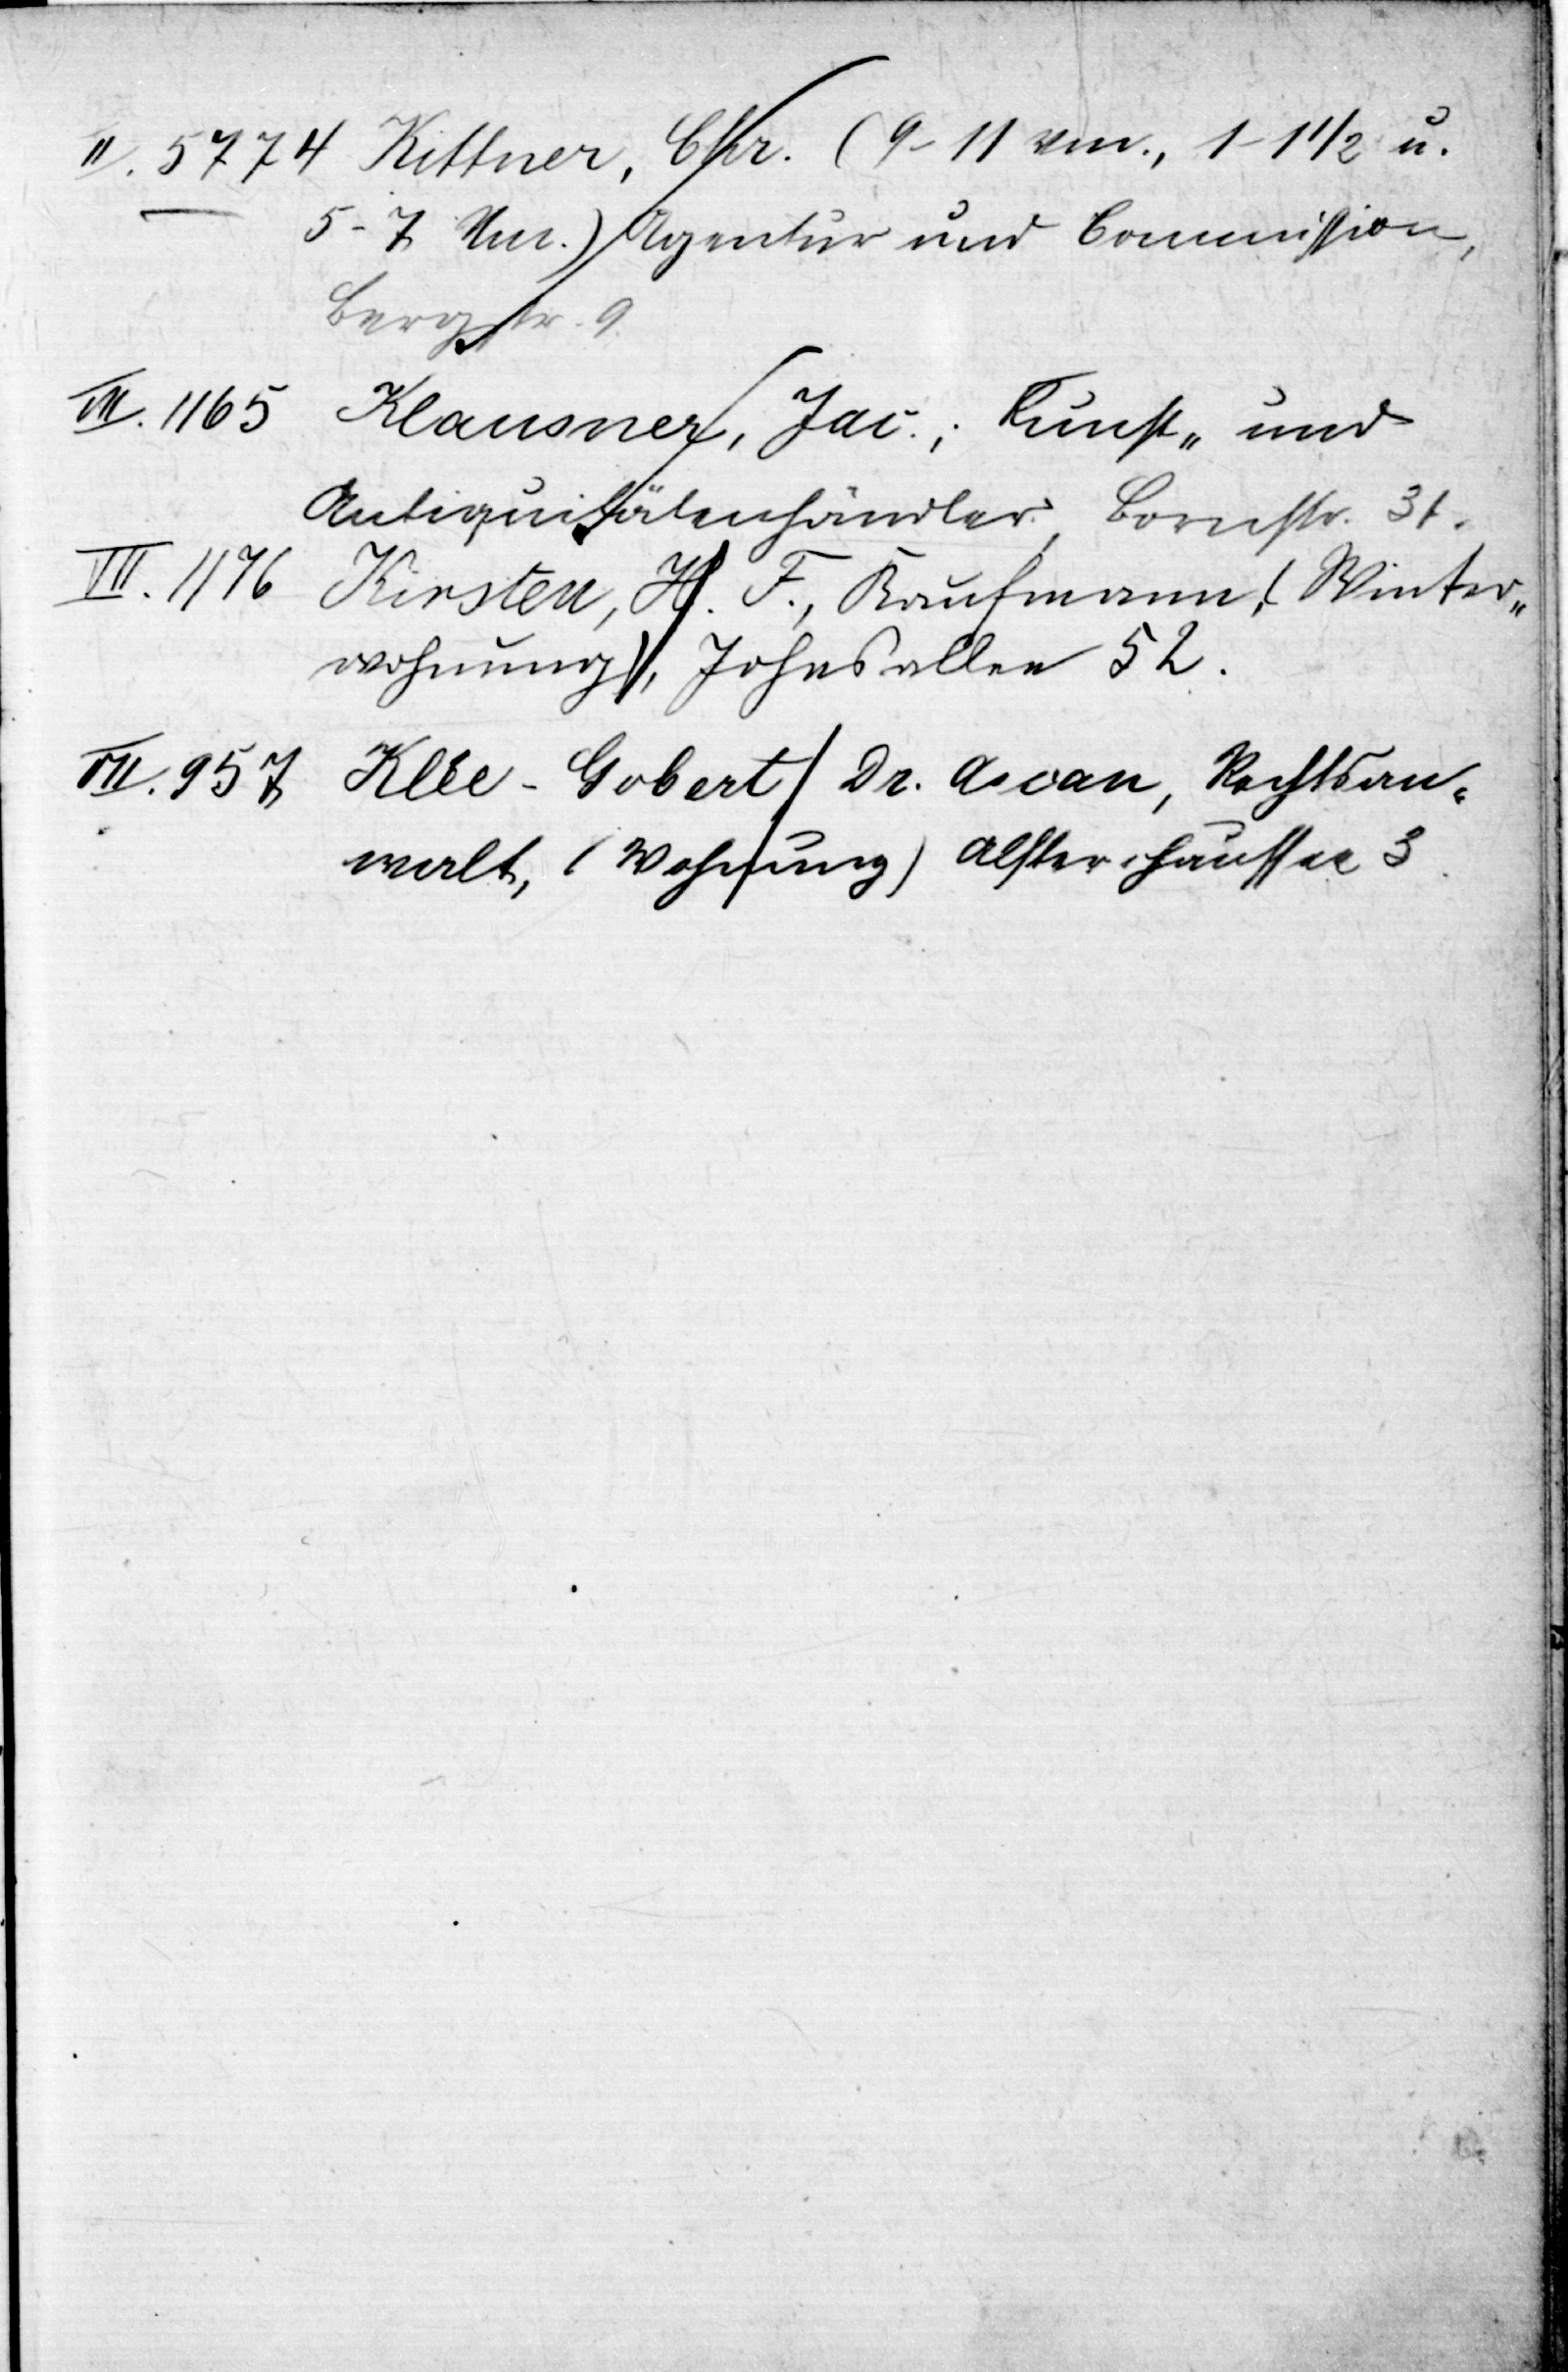 II. 5774 Kittner, Chr. (9-11 Vm., 1-1 1/2 u.
5-7 Nm.) Agentur und Commission,
Bergstr. 9
VII. 1165 Klausner, Jac., Kunst„ und
Antiquitätenhändler, Bornstr. 31.
VII. 1176 Kirsten, H. F., Kaufmann, (Winter„
wohnung), Johnsallee 52.
VII. 957 Klée-Gobert, Dr. Ascan, Rechtsan„
walt, (Wohnung) Alsterchaussee 3